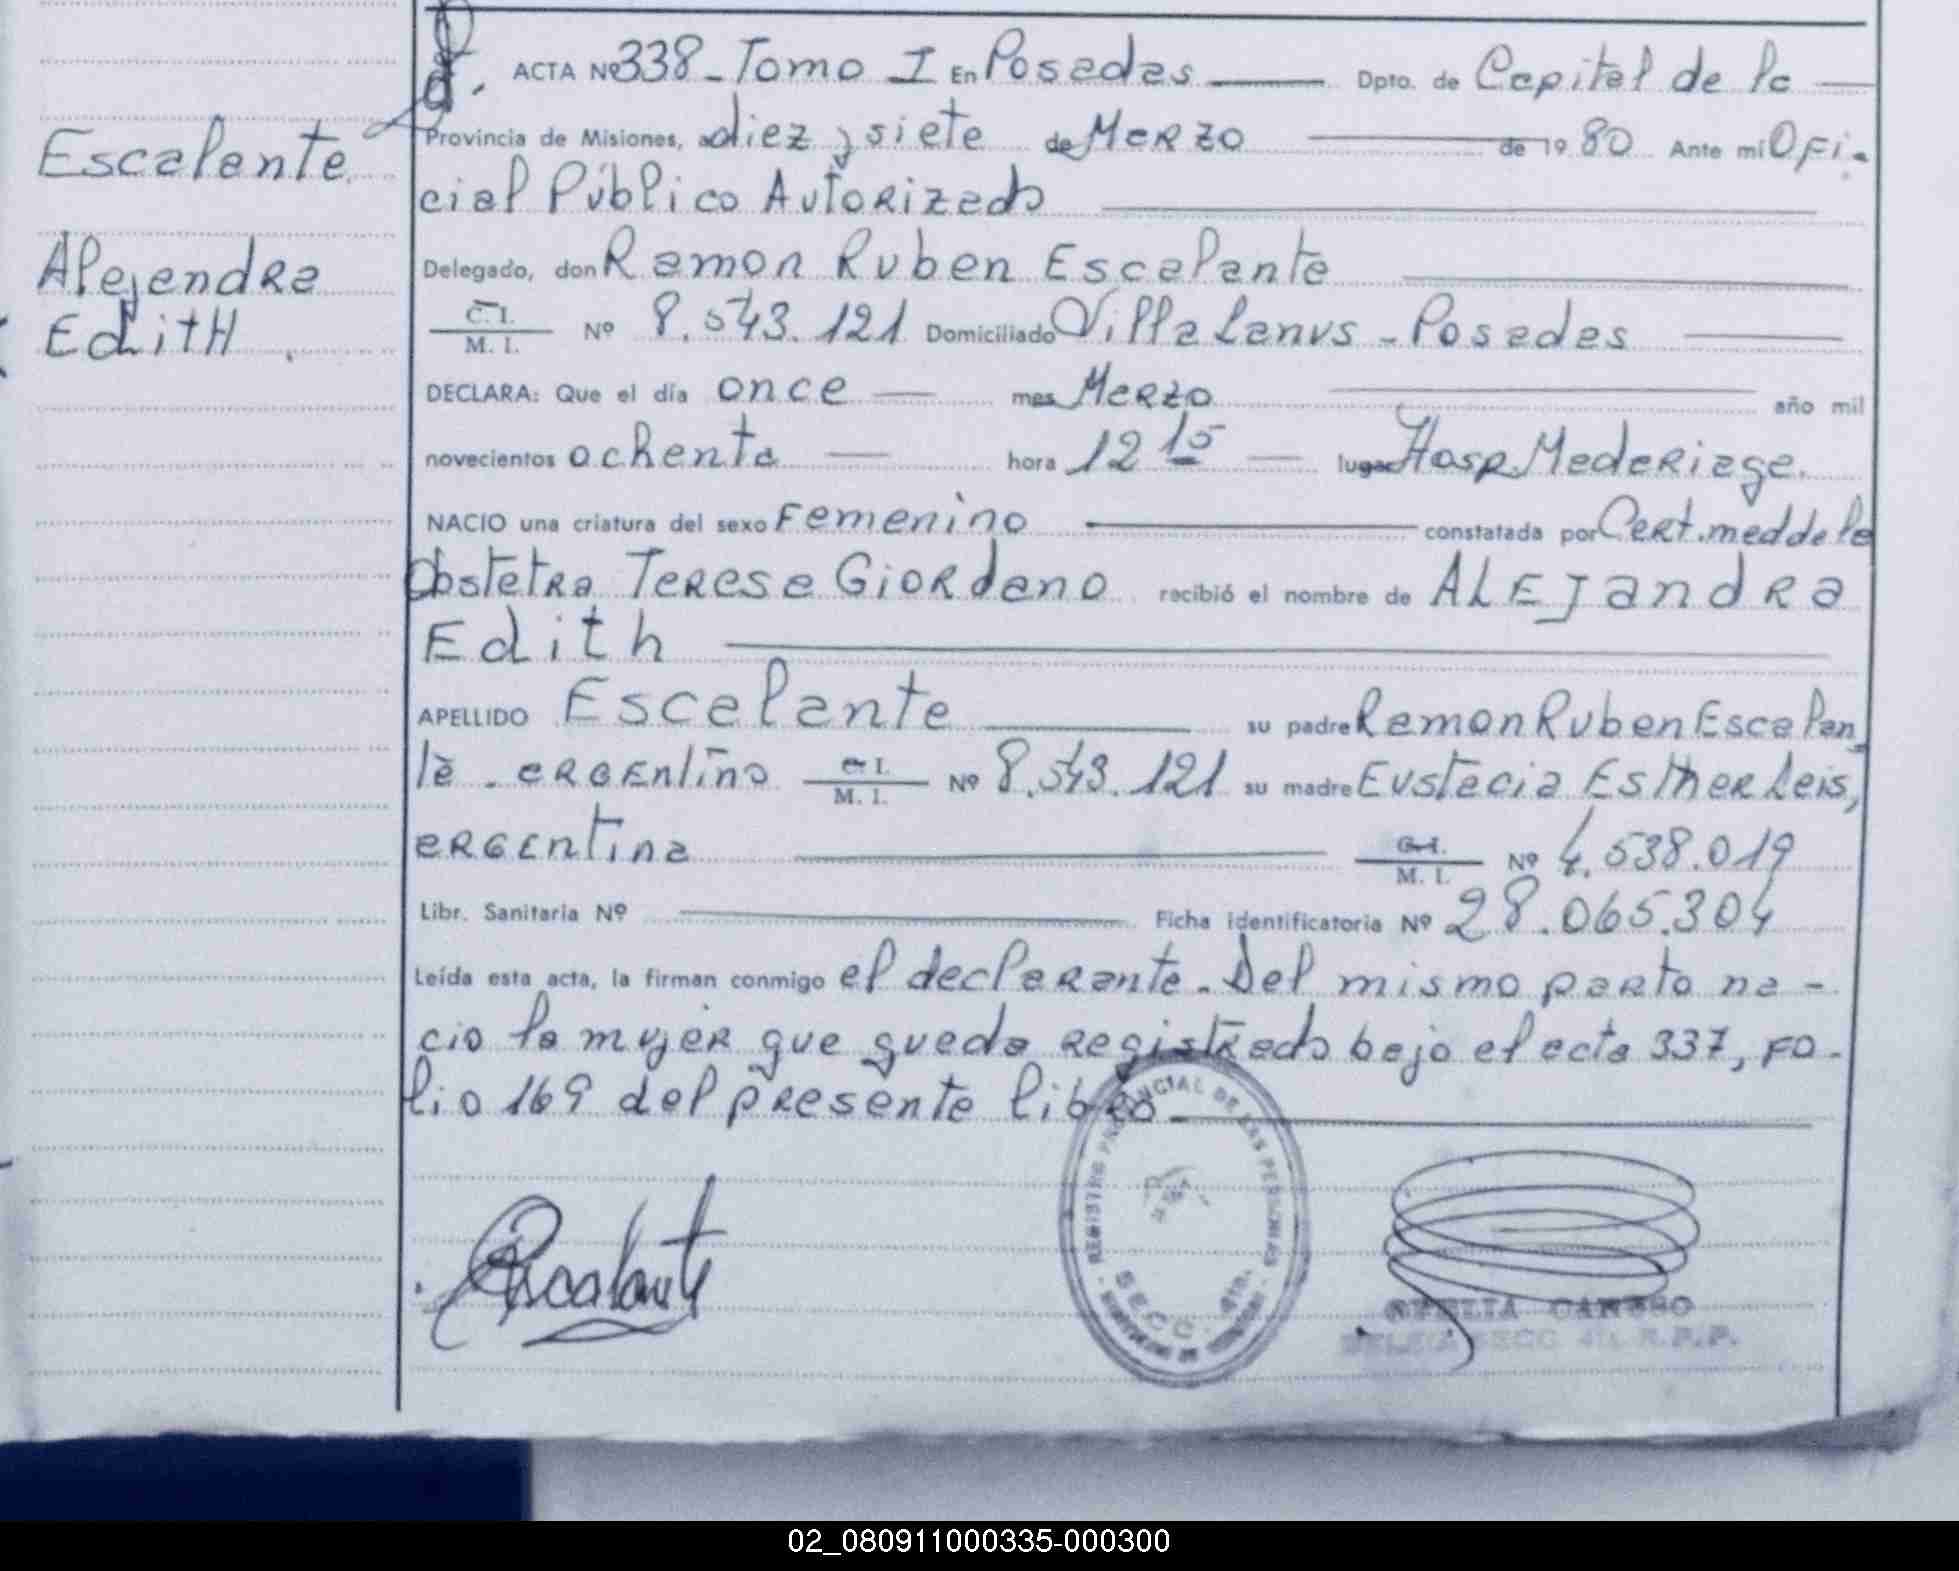 ACTA Nº 338 - Tomo I En Posadas Dpto. de Capital de la
Provincia de Misiones, a diez y siete de Marzo de 1980 Ante mi Ofi-
cial Público Autorizado
Escalante
Delegado, don Ramon Ruben Escalante
Alejandra
C. I. / M. I. Nº 8.543.121 Domiciliado Villa Lanus - Posadas
Edith.
DECLARA: Que el día once mes Marzo año mil
novecientos ochenta hora 12 15 lugar Hosp. Madariaga.
NACIO una criatura del sexo Femenino constatada por Cert. med de la
Obstetra Teresa Giordano recibió el nombre de ALEJandRa
Edith
APELLIDO Escalante su padre Ramon Ruben Escalan
te - argentino C. I. / M. I. Nº 8.543.121 su madre Eustacia Esther Leis,
argentina C. I. / M. I. Nº 4.538.019
Libr. Sanitaria Nº Ficha identificatoria Nº 28.065.304
Leída esta acta, la firman conmigo el declarante. Del mismo parto na-
cio la mujer que queda registrado bajo el acta 337, Fo-
lio 169 del presente libro
REGISTRO PROVINCIAL DE LAS PERSONAS
SECC. 4ta.
Escalante
OFELIA CARUSO
SECC 4ta R.P.P.
02_080911000335-000300